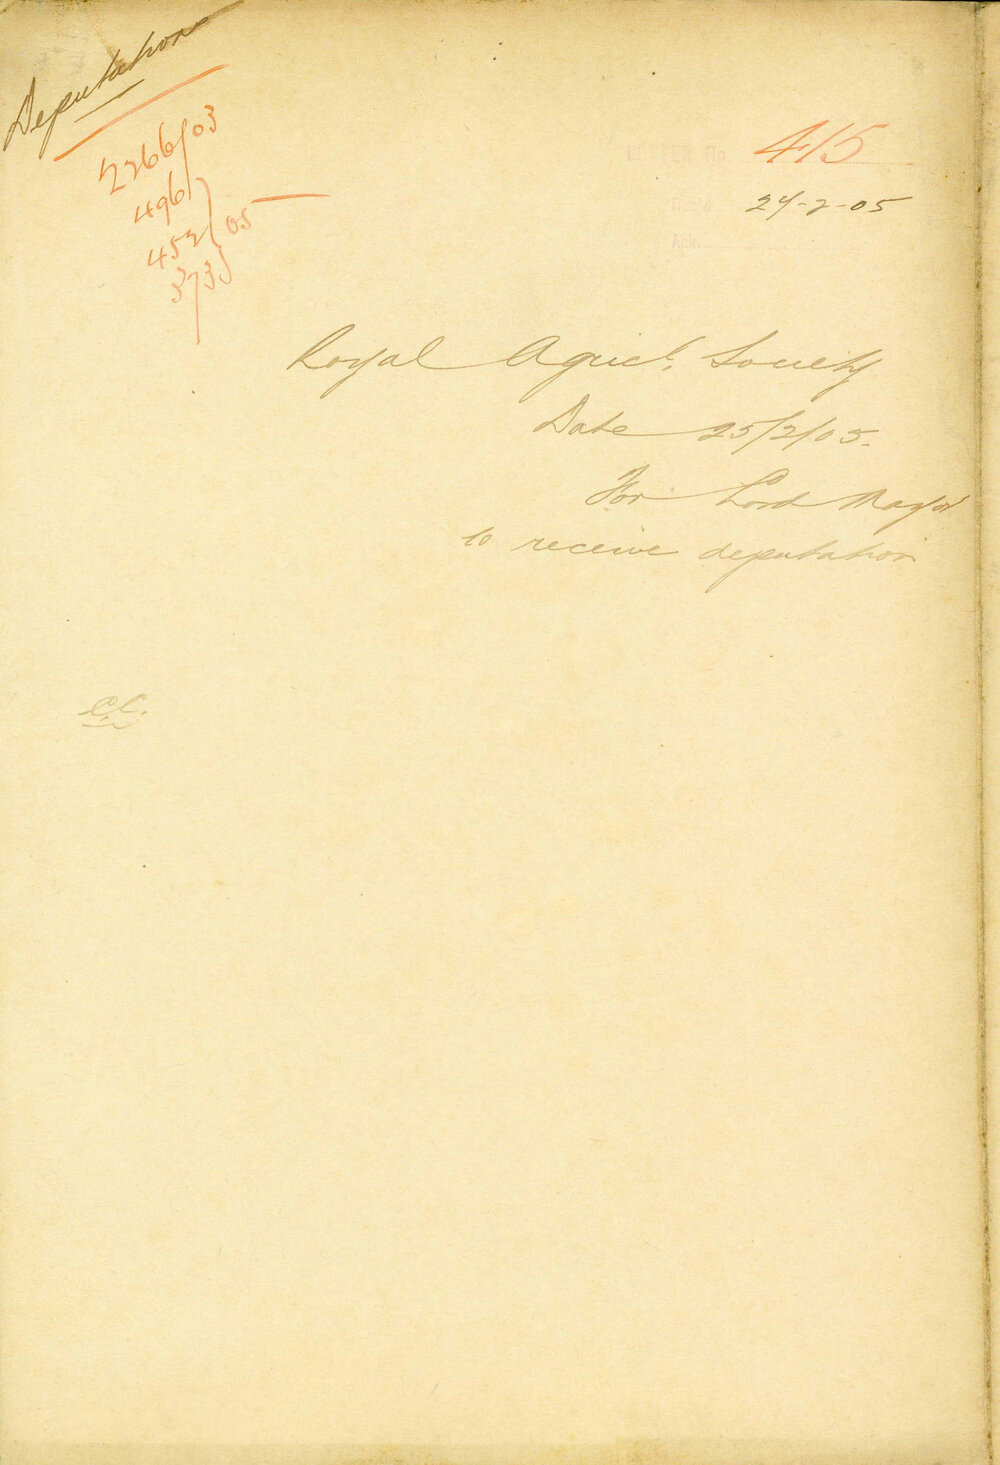 Deputation
2266/03
496
452 /05
373
LETTER No. 415
Rec'd. 27-2-05
Ack.
Royal Agricl. Society
Date 25/2/05.
For Lord Mayor
to receive deputation
C.C.